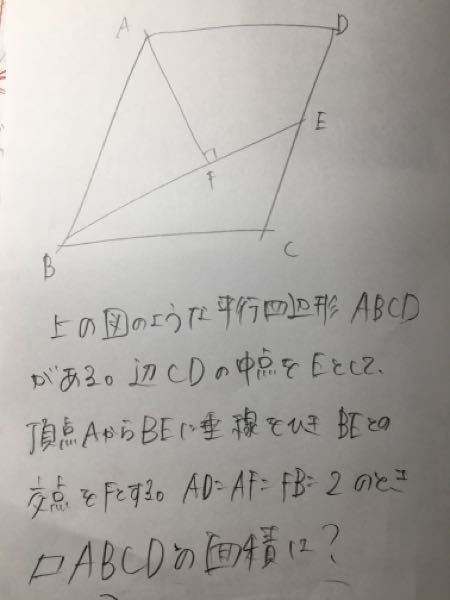 A D
E
F
B C
上の図のような平行四辺形 ABCD
がある。辺CDの中点をEとして、
頂点AからBEに垂線をひき BEとの
交点をFとする。AD=AF=FB=2 のとき
□ABCDの面積は?